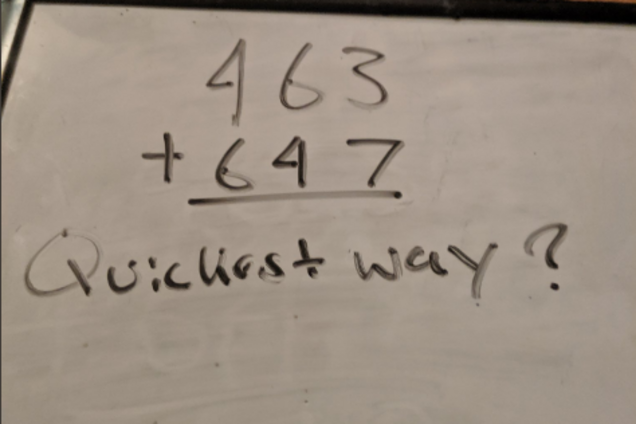 463
+ 647
Quickest way?